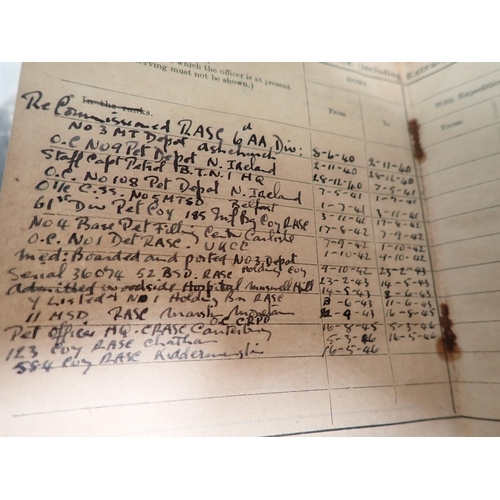 which the officer is at present
serving must not be shown.)
(including
From
To
With Expedit
In the ranks.
Re Commissioned RASC 6 AA Div: 8-6-40 2-11-40
No 3 MT Depot Ashchurch 2-11-40
O.C No 9 Pet Depot N. Ireland
Staff Capt Petrol B.T.N.I HQ 7-5-41
O.C. No 108 Pet Depot N. Ireland
O i/c C.SS. No 5 MTSD Belfast 1-7-41
61st Div Pet Coy 185 Inf Bg Coy RASC 3-11-41
No 4 Base Pet Filling Centre Carlisle 17-8-42 7-9-42
O.C. No 1 Det RASC. UKCC 7-9-42 1-10-42
Med: Boarded and posted No 3 Depot 1-10-42 4-10-42
Serial 36074 52 BSD. RASC Holding Coy 4-10-42 23-2-43
Admitted Woodside Hospital Muswell Hill 23-2-43 14-5-43
Y Listed & No 1 Holding Bn RASC 14-5-43 8-6-43
11 MSD RASC 8-6-43 11-6-43
O.C CRPD
Pet Officer HQ. CRASC Canterbury 16-8-45 5-3-46
123 Coy RASC Chatham 5-3-46 16-5-46
584 Coy RASC Kidderminster 16-5-46